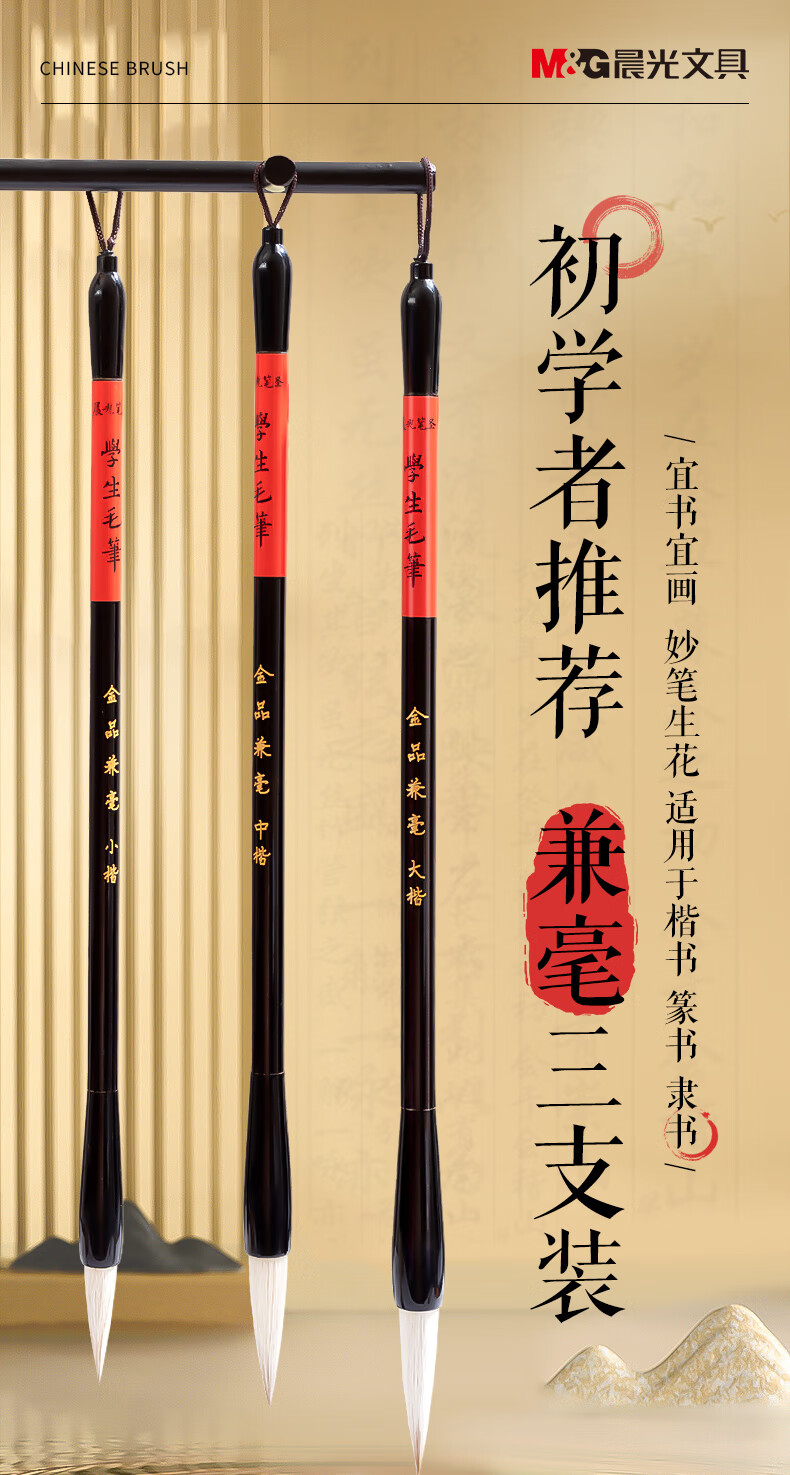 CHINESE BRUSH
M&G晨光文具
初学者推荐 兼毫三支装
/ 宜书宜画 妙笔生花 适用于楷书 篆书 隶书 /
學生毛筆
金品兼毫 小楷
學生毛筆
金品兼毫 中楷
學生毛筆
金品兼毫 大楷